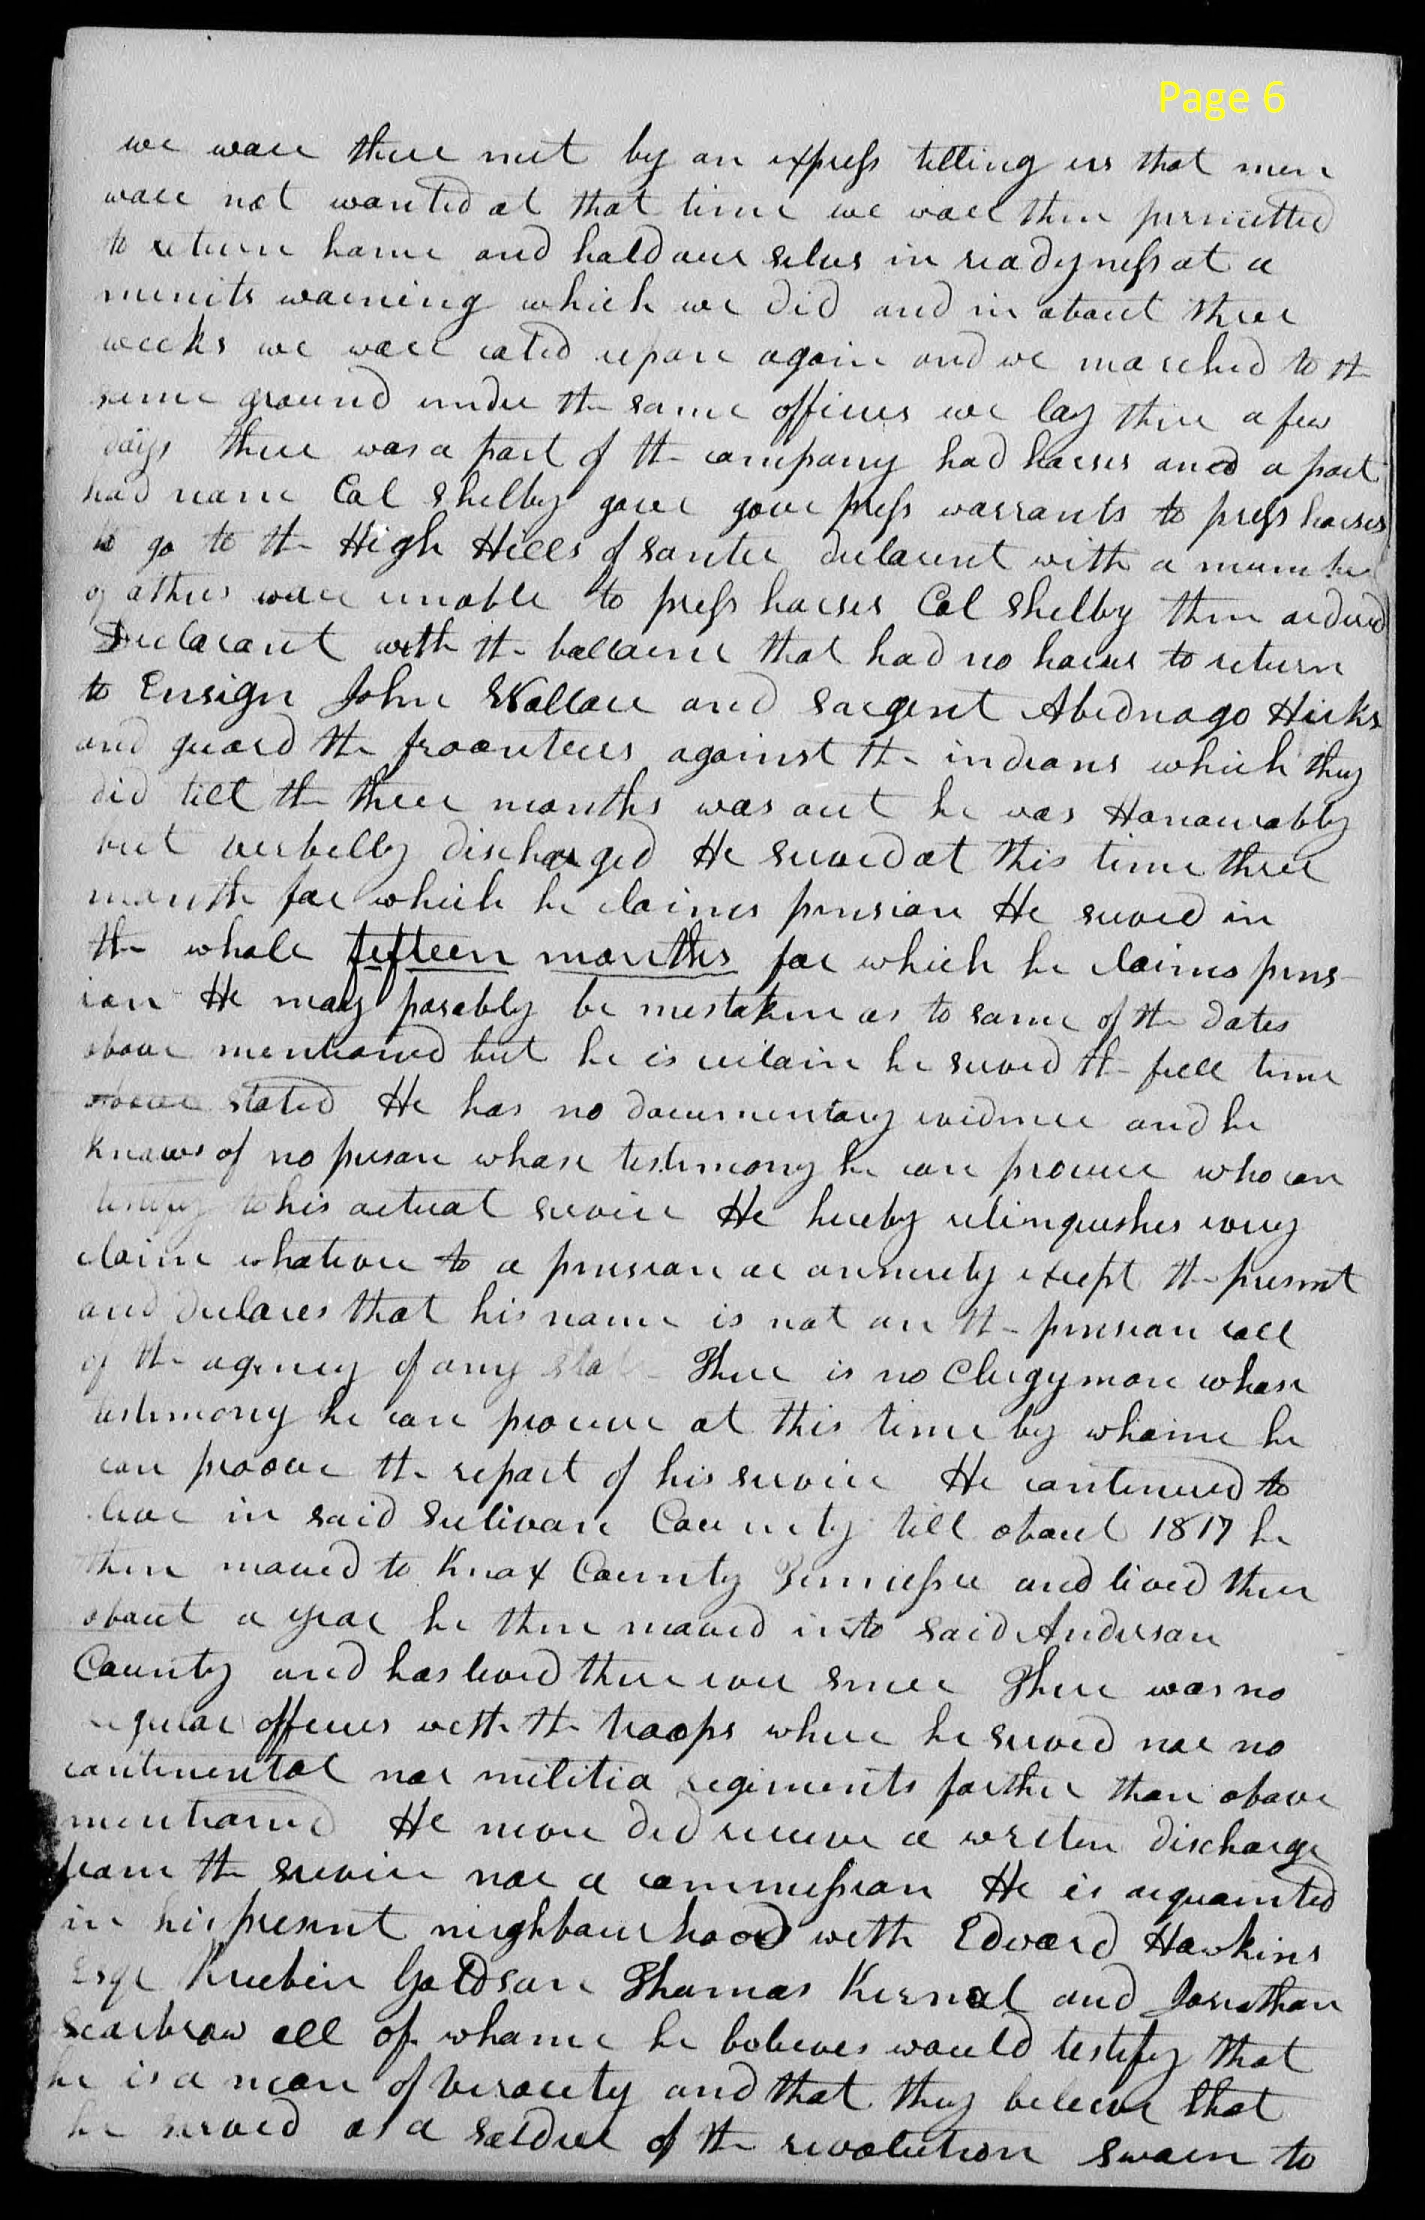 Page 6
we ware there met by an express telling us that men
ware not wanted at that time we ware then permitted
to return home and hold our selves in readyness at a
minits warning which we did and in about three
weeks we ware caled upon again and we marched to the
same ground under the same officers we lay there a few
days there was a part of the company had horses and a part
had none Col Shelby gave gave press warrants to press horses
to go to the High Hills of Santee declarent with a number
of others ware unable to press horses Col Shelby then ordered
Declarant with the ballance that had no horses to return
to Ensign John Wallace and Sargent Abednago Hicks
and guard the froonteers against the indians which they
did till the three months was out he was Honourably
but verbelly discharged He served at this time three
month for which he claims pension He served in
the whole fefteen months for which he claims pens-
ion He may posebly be mestaken as to some of the dates
above mentioned but he is certain he served the full time
above stated He has no documentary evidence and he
knows of no person whose testimony he can procure who can
testify to his actual service He hereby relinqueshes every
claim whatever to a pension or annuety except the present
and declares that his name is not on the pension roll
of the agency of any Stat There is no Clergyman whose
testimony he can procure at this time by whome he
can proove the report of his service He continued to
live in said Sulivan County till about 1817 he
then moved to Knox County Tennessee and lived there
about a year he then moved into said Anderson
County and has lived there ever since There was no
regular officers with the troops where he served nor no
continental nor militia regiments farther than above
mentioned He never did receive a writen discharge
from the service nor a commession He is acquainted
in his present neighbourhood with Edward Hawkins
Esqr Rueben Goldson Thomas Kernal and Jonathan
Scarbrow all of whome he beleves would testify that
he is a man of veracety and that they beleeve that
he served as a soldier of the revolution Sworn to